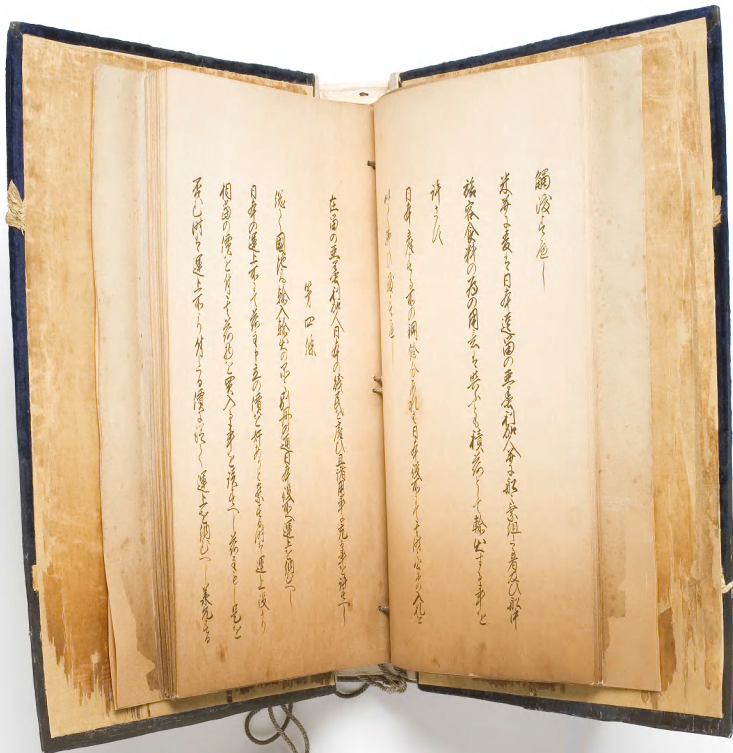 觸渡すへし
米并に麥は日本逗留の亞墨利加人并に船に乗組たる者及ひ船中
旅客食料の爲の用意は與ふとも積荷として輸出する事を
許さす
日本産する所の銅餘分あれは日本役所にて其時々公けの入札を
以て拂ひ渡すへし
在留の亞墨利加人日本の賤民を雇ひ且諸用事に充る事を許すへし
第四條
總て國地に輸入輸出の品々別冊の通日本役所へ運上を納むへし
日本の運上所にて荷主申立の價を奸ありと察する時は運上役より
相當の價を付け其荷物を買入る事を談すへし荷主若し是を
否む時は運上所より付たる價に從て運上を納むへし承允する